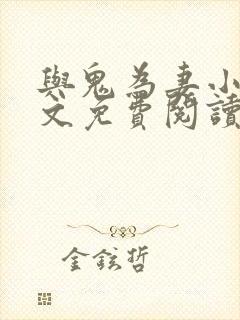 與鬼為妻小
文免費閱讀
金鉉哲